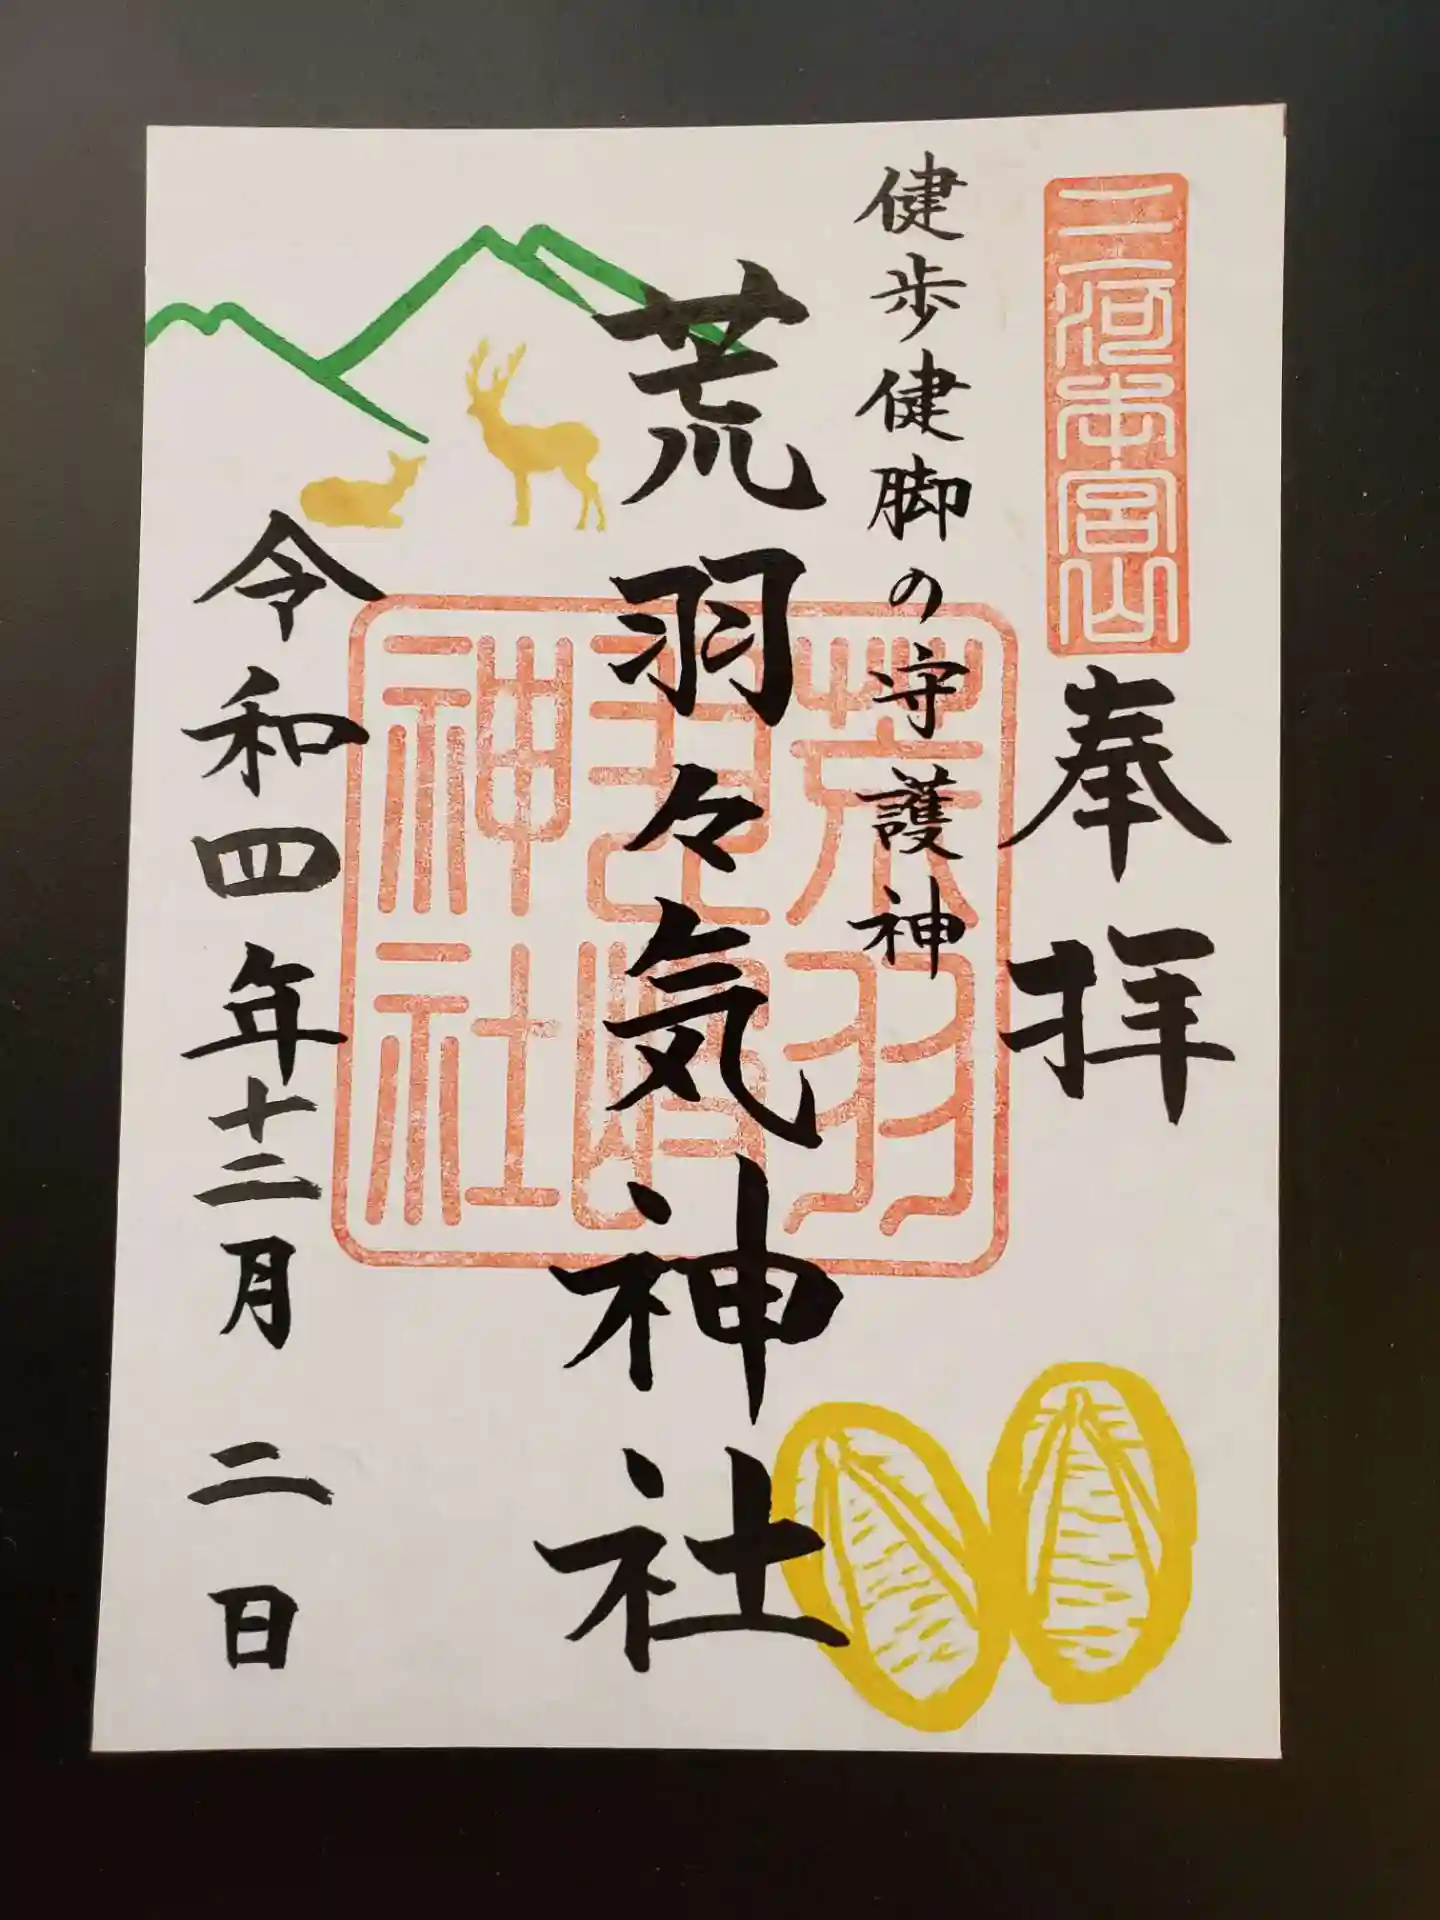 三河本宮山
奉拝
健歩健脚の守護神
荒羽々気神社
荒羽
神社
令和四年十二月二日